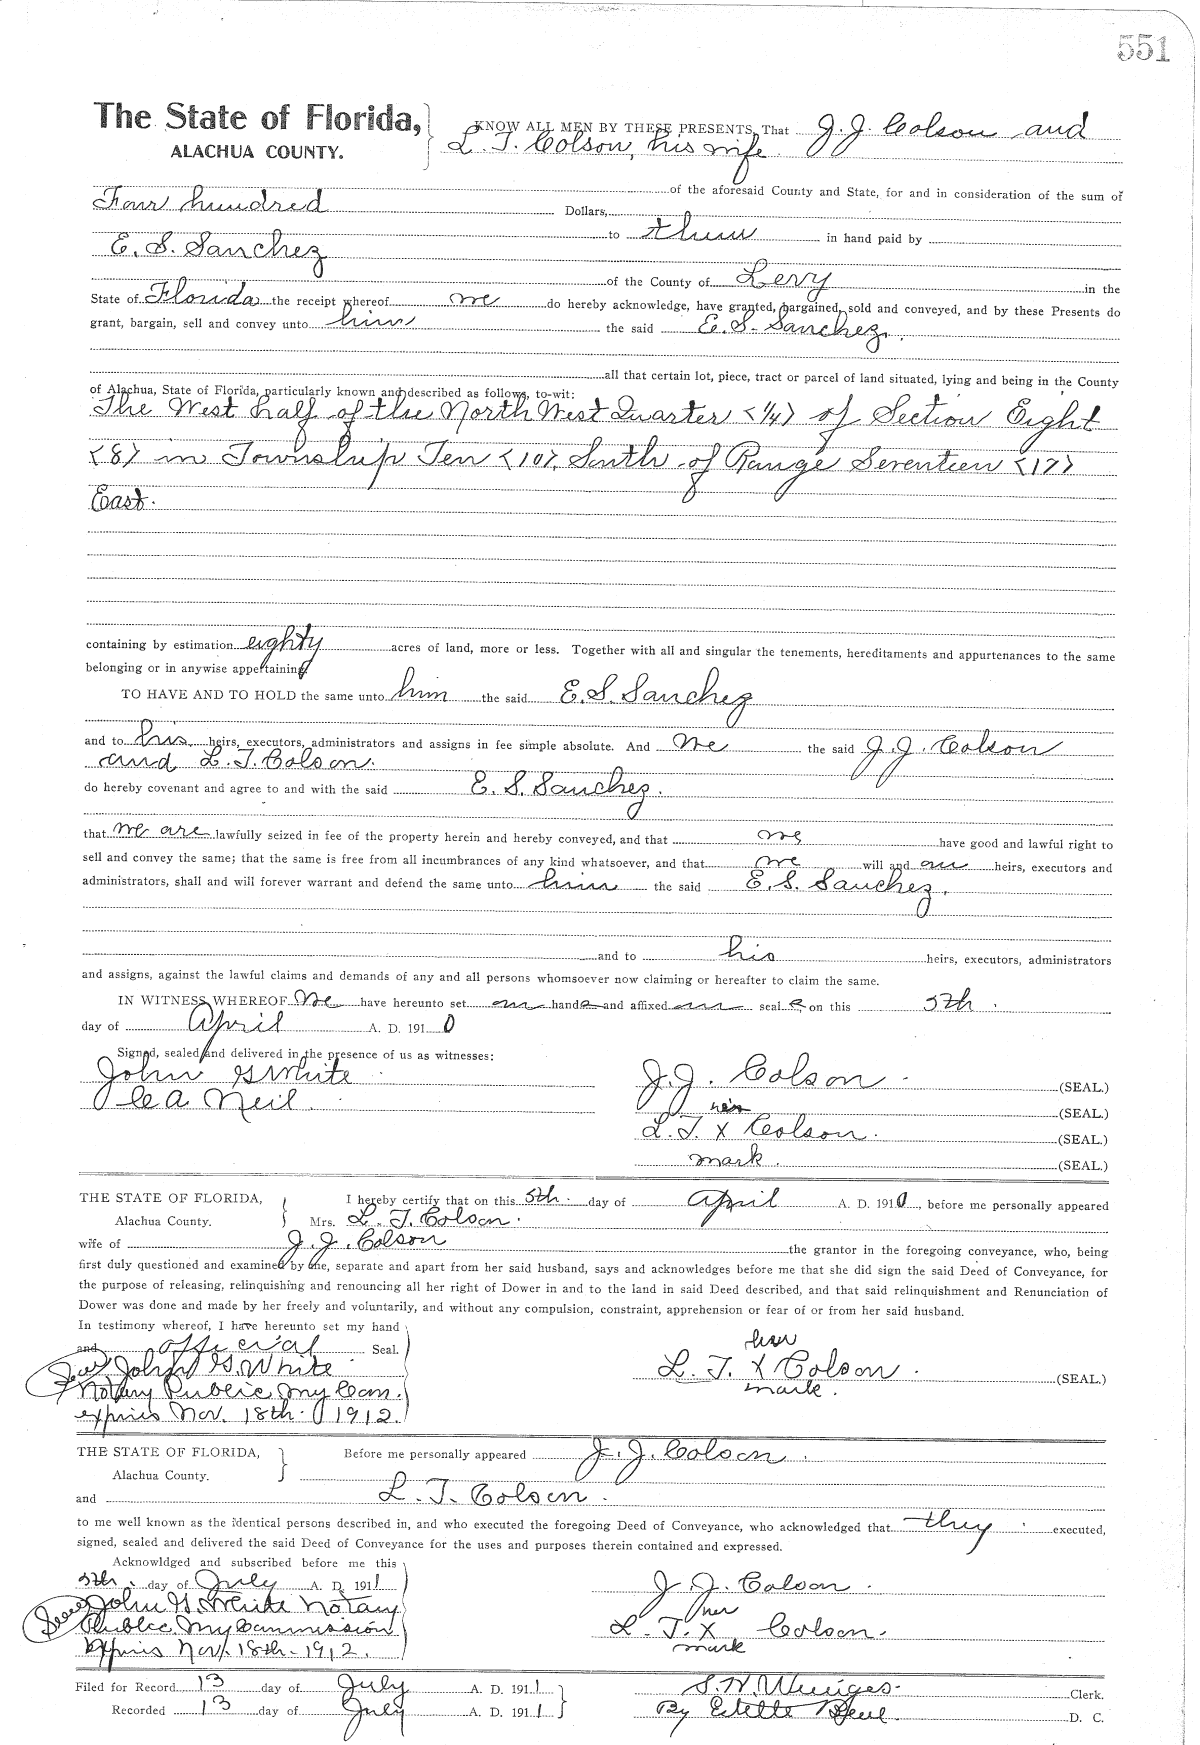 551
The State of Florida, KNOW ALL MEN BY THESE PRESENTS, That J. J. Colson and
ALACHUA COUNTY. L. T. Colson, his wife.
of the aforesaid County and State, for and in consideration of the sum of
Four hundred Dollars,
to them in hand paid by
E. S. Sanchez
of the County of Levy in the
State of Florida the receipt whereof we do hereby acknowledge, have granted, bargained, sold and conveyed, and by these Presents do
grant, bargain, sell and convey unto him the said E. S. Sanchez.
all that certain lot, piece, tract or parcel of land situated, lying and being in the County
of Alachua, State of Florida, particularly known and described as follows, to-wit:
The West half of the North West Quarter <1/4> of Section Eight
<8> in Township Ten <10>, South of Range Seventeen <17>
East.
containing by estimation eighty acres of land, more or less. Together with all and singular the tenements, hereditaments and appurtenances to the same
belonging or in anywise appertaining
TO HAVE AND TO HOLD the same unto him the said E. S. Sanchez
and to his heirs, executors, administrators and assigns in fee simple absolute. And we the said J. J. Colson
and L. T. Colson.
do hereby covenant and agree to and with the said E. S. Sanchez.
that we are lawfully seized in fee of the property herein and hereby conveyed, and that we have good and lawful right to
sell and convey the same; that the same is free from all incumbrances of any kind whatsoever, and that we will and our heirs, executors and
administrators, shall and will forever warrant and defend the same unto him the said E. S. Sanchez.
and to his heirs, executors, administrators
and assigns, against the lawful claims and demands of any and all persons whomsoever now claiming or hereafter to claim the same.
IN WITNESS WHEREOF We have hereunto set our hands and affixed our seal s on this 5th.
day of April A. D. 1910
Signed, sealed and delivered in the presence of us as witnesses:
John G White J. J. Colson. (SEAL.)
C A Neil. her (SEAL.)
L. T. X Colson. (SEAL.)
mark. (SEAL.)
THE STATE OF FLORIDA, I hereby certify that on this 5th. day of April A. D. 1910, before me personally appeared
Alachua County. Mrs. L. T. Colson.
wife of J. J. Colson the grantor in the foregoing conveyance, who, being
first duly questioned and examined by me, separate and apart from her said husband, says and acknowledges before me that she did sign the said Deed of Conveyance, for
the purpose of releasing, relinquishing and renouncing all her right of Dower in and to the land in said Deed described, and that said relinquishment and Renunciation of
Dower was done and made by her freely and voluntarily, and without any compulsion, constraint, apprehension or fear of or from her said husband.
In testimony whereof, I have hereunto set my hand
and official Seal. her
Seal John G. White L. T. X Colson. (SEAL.)
Notary Public My Com. mark.
expires Nov. 18th. 1912.
THE STATE OF FLORIDA, Before me personally appeared J. J. Colson.
Alachua County.
and L. T. Colson.
to me well known as the identical persons described in, and who executed the foregoing Deed of Conveyance, who acknowledged that they executed,
signed, sealed and delivered the said Deed of Conveyance for the uses and purposes therein contained and expressed.
Acknowldged and subscribed before me this
5th. day of July A. D. 1911 J. J. Colson.
Seal John G. White Notary her
Public My Commission L. T. X Colson.
Expires Nov. 18th. 1912. mark
Filed for Record 13 day of July A. D. 1911 S. H. Wienges. Clerk.
Recorded 13 day of July A. D. 1911 By Estelle D. C.